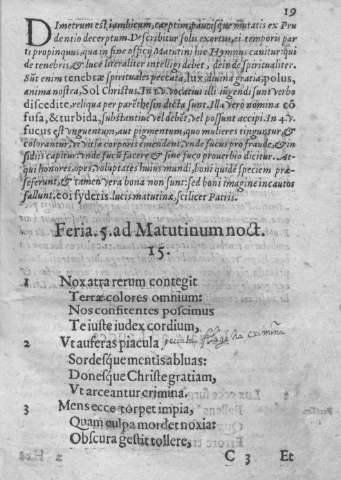 19
DImetrum est iambicum, carptim, paucisque mutatis ex Pru
dentio decerptum. Describitur solis exortus, ei tempori par
ti propinquus, qua in fine officij Matutini hic Hymnus canitur: qui
de tenebris, & luce literaliter intelligi debet, deinde spiritualiter.
Sũt enim tenebræ spirituales peccata, lux, diuina gratia, polus,
anima nostra, Sol Christus. In 1. v. vocatiui illi iũgendi sunt verbo
discedite, reliqua per parẽthesin dicta sunt. Illa vero nomina cõ
fusa, & turbida, substantiuè vel debẽt, vel possunt accipi. In 4. v.
fucus est vnguentum, aut pigmentum, quo mulieres tinguntur, &
colorantur, vt vitia corporis emendent, vnde fucus pro fraude, & in
sidiis capitur, vnde fucũ facere & sine fuco prouerbio dicitur. At-
qui honores, opes, voluptates huius mundi, boni quidẽ speciem præ-
seferunt, & tamen vera bona non sunt: sed boni imagine incautos
fallunt. eoi syderis. lucis matutinæ, scilicet Patris.
Feria. 5. ad Matutinum noct.
15.
1 Nox atra rerum contegit
Terræ colores omnium:
Nos confitentes poscimus
Te iuste iudex cordium,
2 Vt auferas piacula
Sordesque mentis abluas:
Donesque Christe gratiam,
Vt arceantur crimina.
3 Mens ecce torpet impia,
Quam culpa mordet noxia:
Obscura gestit tollere,
C 3 Et